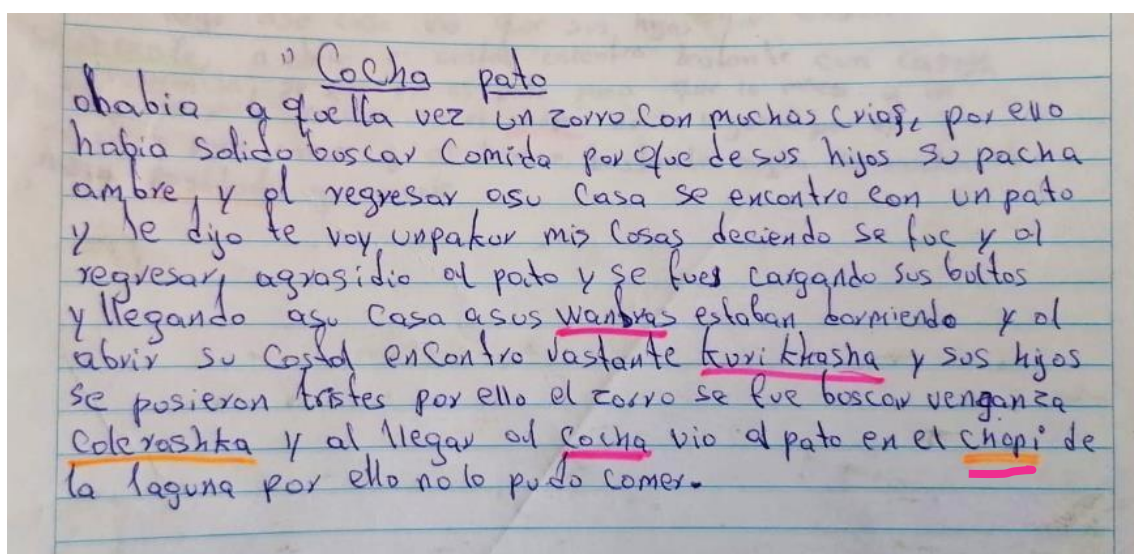 " Cocha pato
ohabia a quella vez un zorro con muchas crias, por ello
habia salido boscar Comida por que de sus hijos su pacha
ambre, y al regresar asu Casa se encontro con un pato
y le dijo te voy unpakur mis Cosas deciendo se fue y al
regresar, agrasidio al pato y se fues cargando sus bultos
y llegando asu Casa asus wanbras estaban dormiendo y al
abrir su Costal encontro vastante kuri khasha y sus hijos
se posieron tristes por ello el zorro se fue boscar venganza
Coleroshka y al llegar al Cocha vio al pato en el chapi de
la laguna por ello no lo pudo comer.